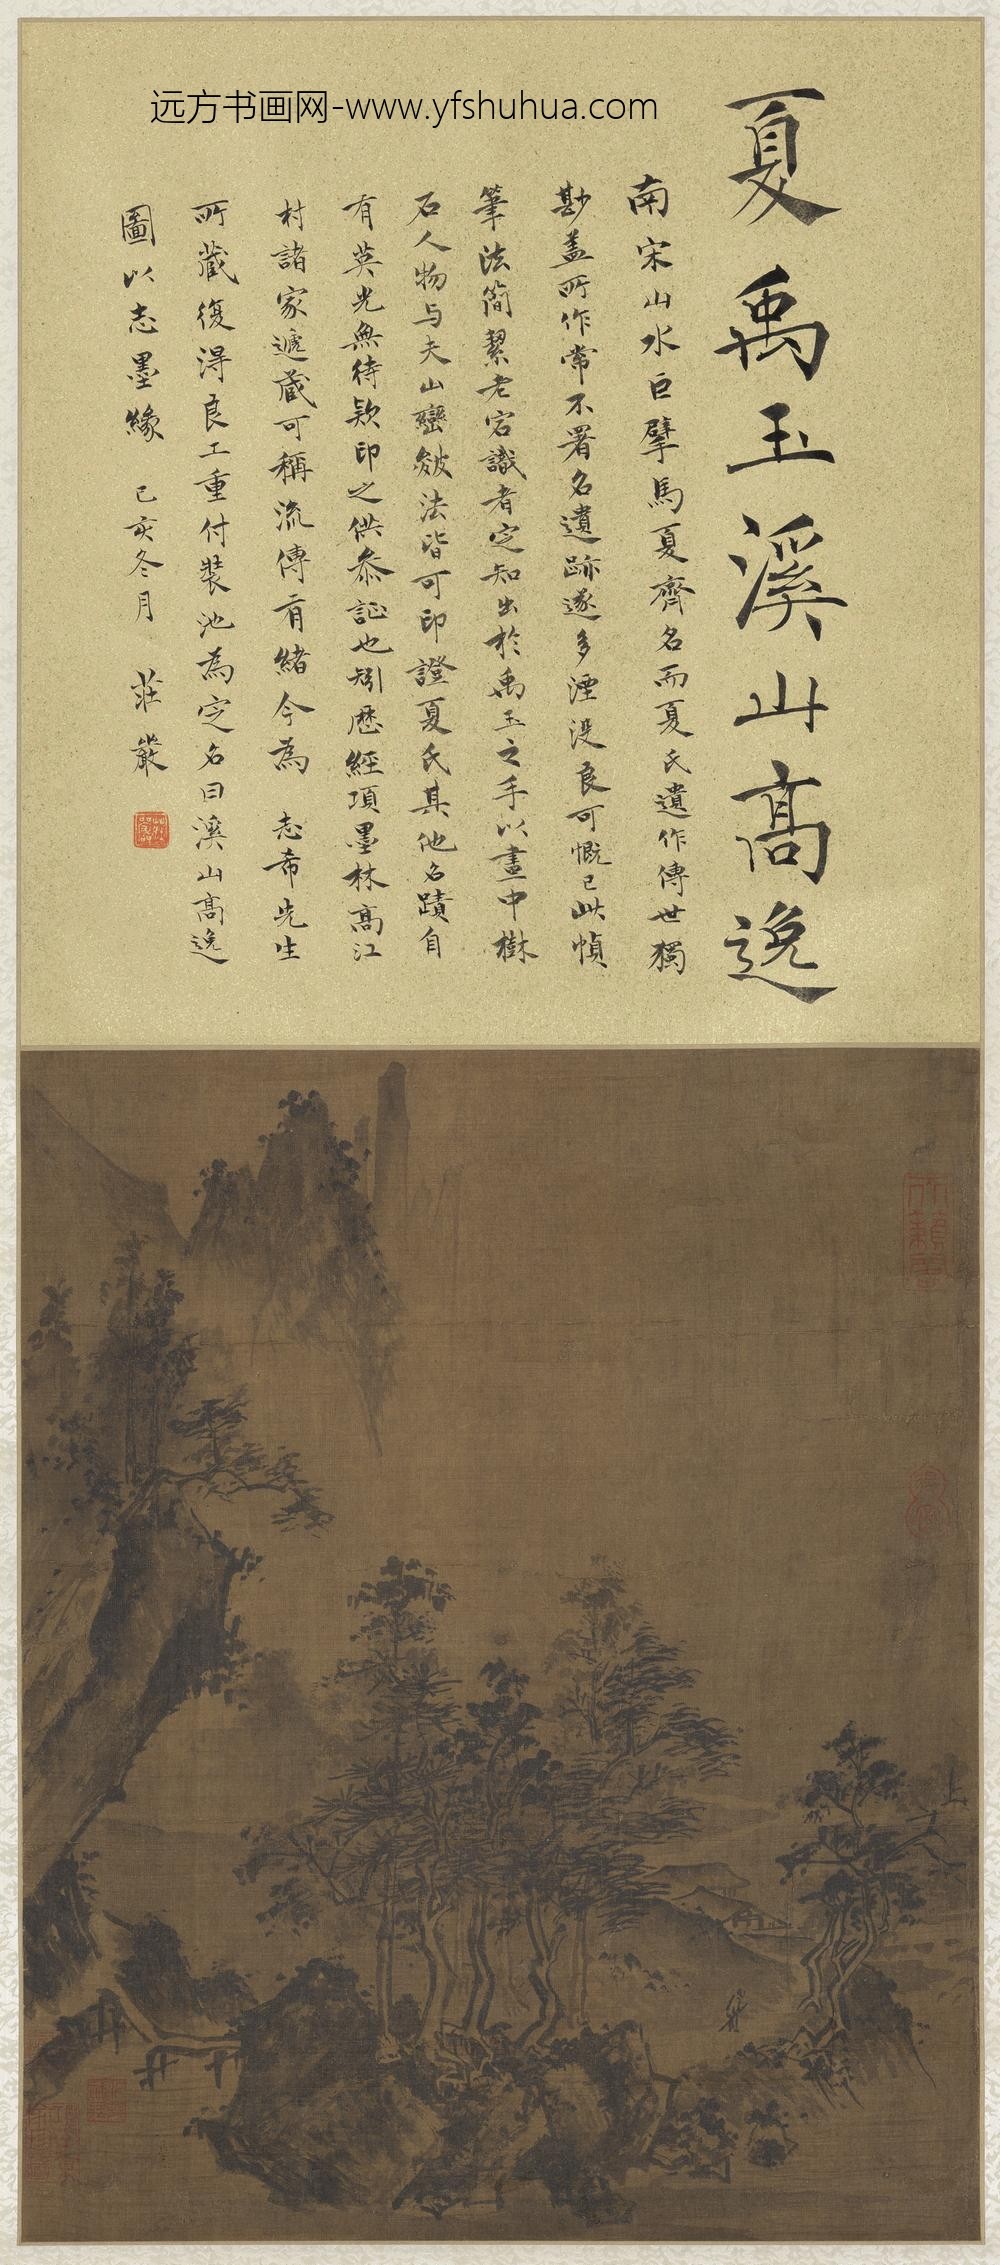 远方书画网-www.yfshuhua.com
夏禹玉溪山高逸
南宋山水巨擘馬夏齊名而夏氏遺作傳世獨
尠蓋所作常不署名遺跡遂多湮没良可慨已此幀
筆法簡絜老宕識者定知出於禹玉之手以畫中樹
石人物与夫山巒皴法皆可印證夏氏其他名蹟自
有英光無待款印之供叅証也矧歷經項墨林高江
村諸家遞藏可稱流傳有緒今為 志希先生
所藏復得良工重付裝池為定名曰溪山高逸
圖以志墨緣 己亥冬月 莊嚴